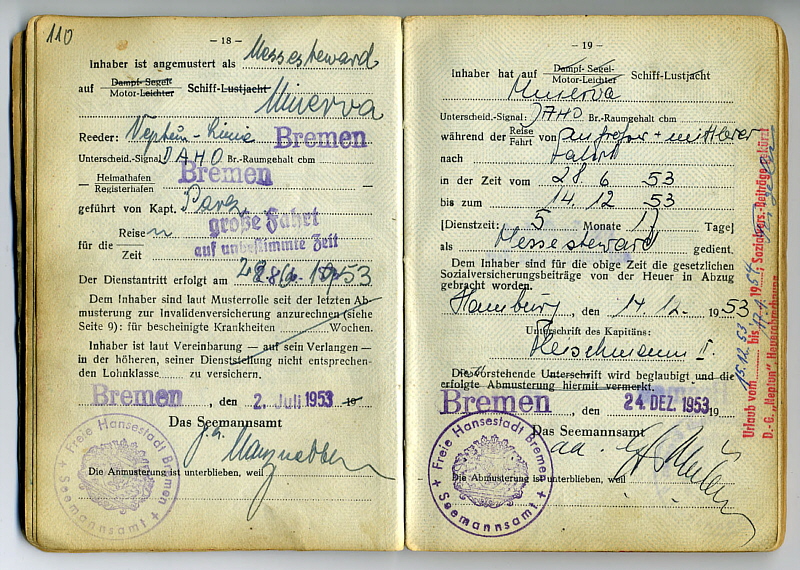 110
– 18 –
Inhaber ist angemustert als Messesteward
auf Dampf- Segel- Motor-Leichter Schiff-Lustjacht
Minerva
Reeder: Neptun-Linie Bremen
Unterscheid.-Signal DAHO Br.-Raumgehalt cbm
Heimathafen
Registerhafen
Bremen
geführt von Kapt.
Reisen
für die
Zeit
große Fahrt
auf unbestimmte Zeit
Der Dienstantritt erfolgt am 28.6. 1953
Dem Inhaber sind laut Musterrolle seit der letzten Ab-
musterung zur Invalidenversicherung anzurechnen (siehe
Seite 9): für bescheinigte Krankheiten Wochen.
Inhaber ist laut Vereinbarung – auf sein Verlangen –
in der höheren, seiner Dienststellung nicht entsprechen-
den Lohnklasse zu versichern.
Bremen, den 2. Juli 1953 19
Das Seemannsamt
Freie Hansestadt Bremen
Seemannsamt
Die Anmusterung ist unterblieben, weil
– 19 –
Inhaber hat auf Dampf- Segel- Motor-Leichter Schiff-Lustjacht
Minerva
Unterscheid.-Signal: Br.-Raumgehalt cbm
während der Reise Fahrt von großer + mittlerer
nach Fahrt
in der Zeit vom 28 6 53
bis zum 14. 12 53
[Dienstzeit: 5 Monate 17 Tage]
als Messesteward gedient.
Dem Inhaber sind für die obige Zeit die gesetzlichen
Sozialversicherungsbeiträge von der Heuer in Abzug
gebracht worden.
Hamburg, den 14.12. 1953
Unterschrift des Kapitäns:
Die Vorstehende Unterschrift wird beglaubigt und die
erfolgte Abmusterung hiermit vermerkt.
Bremen, den 24. DEZ 1953 19
Das Seemannsamt
Freie Hansestadt Bremen
Seemannsamt
Die Abmusterung ist unterblieben, weil
Urlaub vom 15.12.53 bis 17.1. 1954; Sozialvers.-Beiträge gekürzt
D.-G. „Neptun" Heuerabrechnung